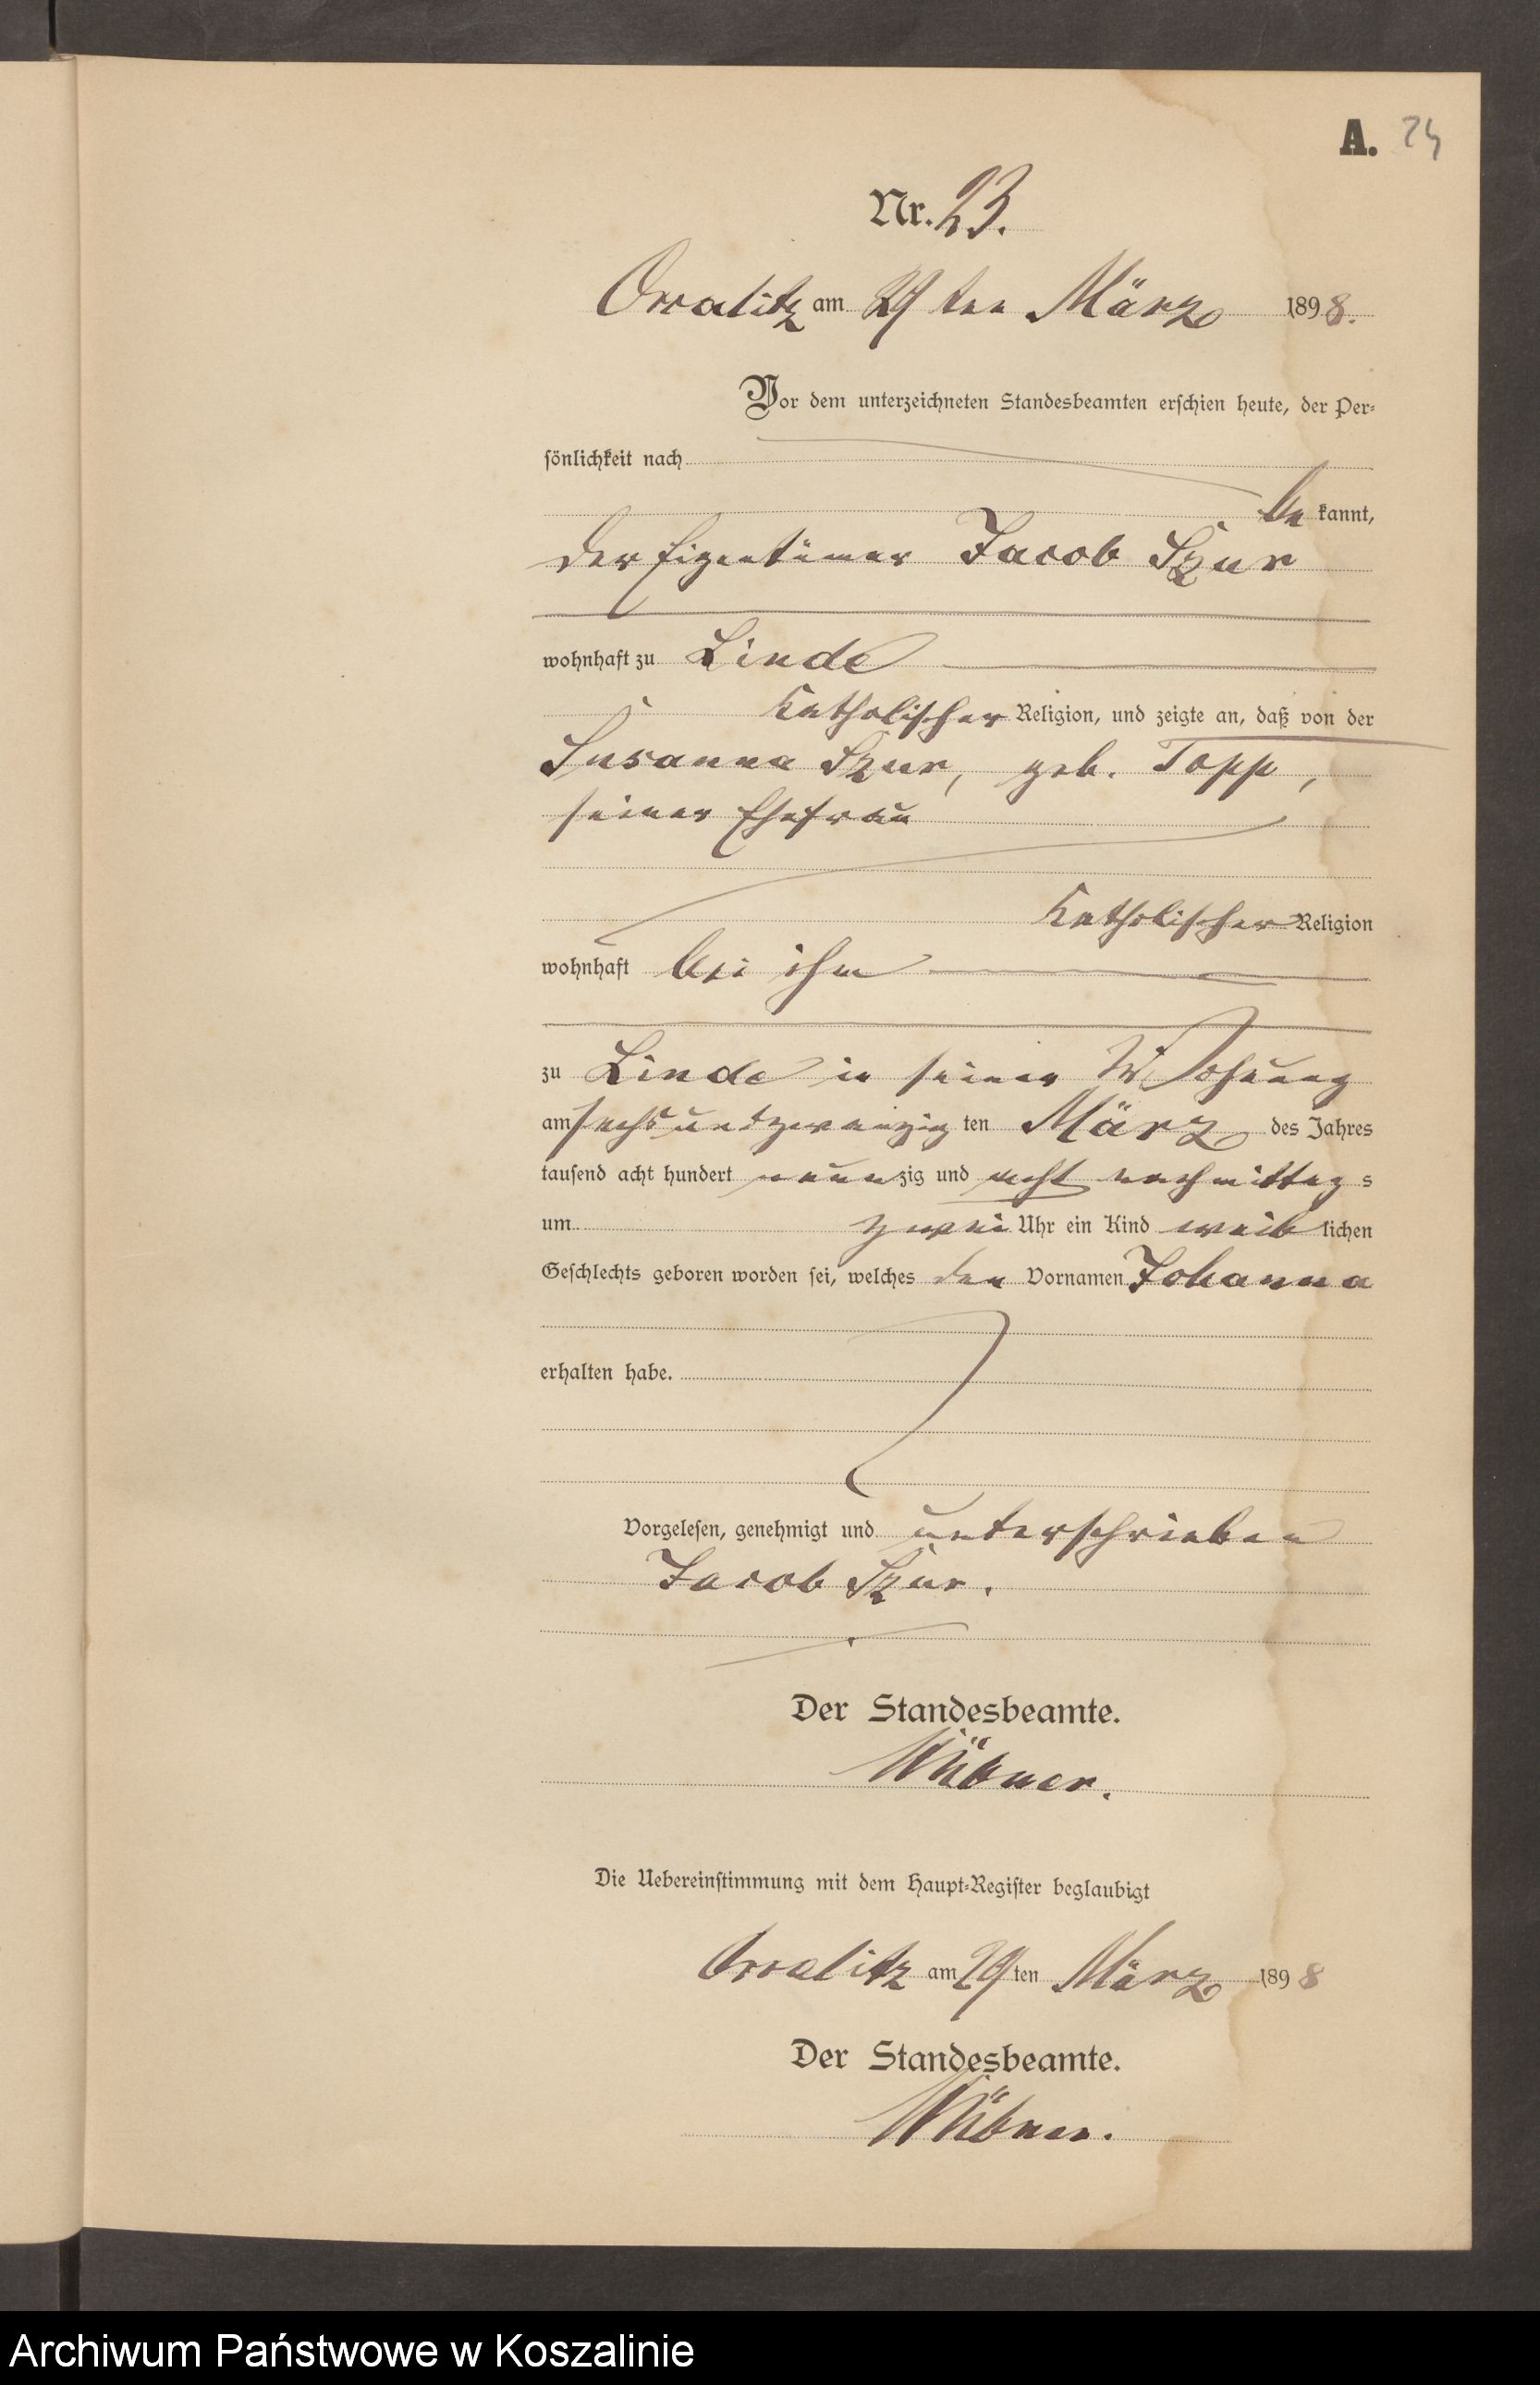 A. 24
Nr. 23.
Ossalitz am 29 ten März 1898.
Vor dem unterzeichneten Standesbeamten erschien heute, der Per-
sönlichkeit nach
be kannt,
der Eigentümer Jacob Szur
wohnhaft zu Linde
katholischer Religion, und zeigte an, daß von der
Susanna Szur, geb. Topp,
seiner Ehefrau
katholischer Religion
wohnhaft bei ihm
zu Linde in seiner Wohnung
am sechsundzwanzig ten März des Jahres
tausend acht hundert neunzig und acht nachmittag s
um zwei Uhr ein Kind weib lichen
Geschlechts geboren worden sei, welches den Vornamen Johanna
erhalten habe.
Vorgelesen, genehmigt und unterschrieben
Jacob Szur.
Der Standesbeamte.
Die Uebereinstimmung mit dem Haupt-Register beglaubigt
Ossalitz am 29 ten März 1898
Der Standesbeamte.
Archiwum Państwowe w Koszalinie